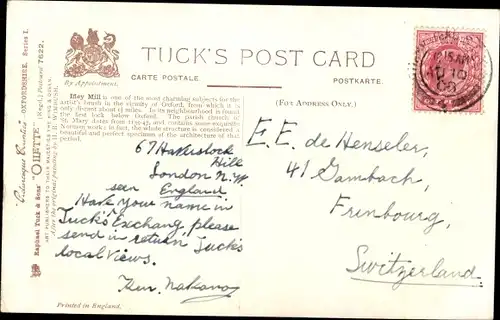 TUCK'S POST CARD
By Appointment.
CARTE POSTALE.
POSTKARTE.
(FOR ADDRESS ONLY.)
Iffley Mill is one of the most charming subjects for the
artist's brush in the vicinity of Oxford, from which it is
only distant about 1½ miles. In its neighbourhood is found
the first lock below Oxford. The parish church of
St. Mary dates from 1135-43, and contains some exquisite
Norman work; in fact, the whole structure is considered a
beautiful and perfect specimen of the architecture of that
period.
67 Haverstock
Hill
London N.W.
England
seen
Have your name in
Tuck's Exchang, please
send in return Tuck's
local views.
Nakano
E.E. de Henseler,
41 Gambach,
Frinbourg,
Switzerland.
Raphael Tuck & Sons' "OILETTE" (Regd.) Postcard 7622.
Picturesque Counties OXFORDSHIRE. Series I.
ART PUBLISHERS TO THEIR MAJESTIES THE KING & QUEEN.
Printed in England.